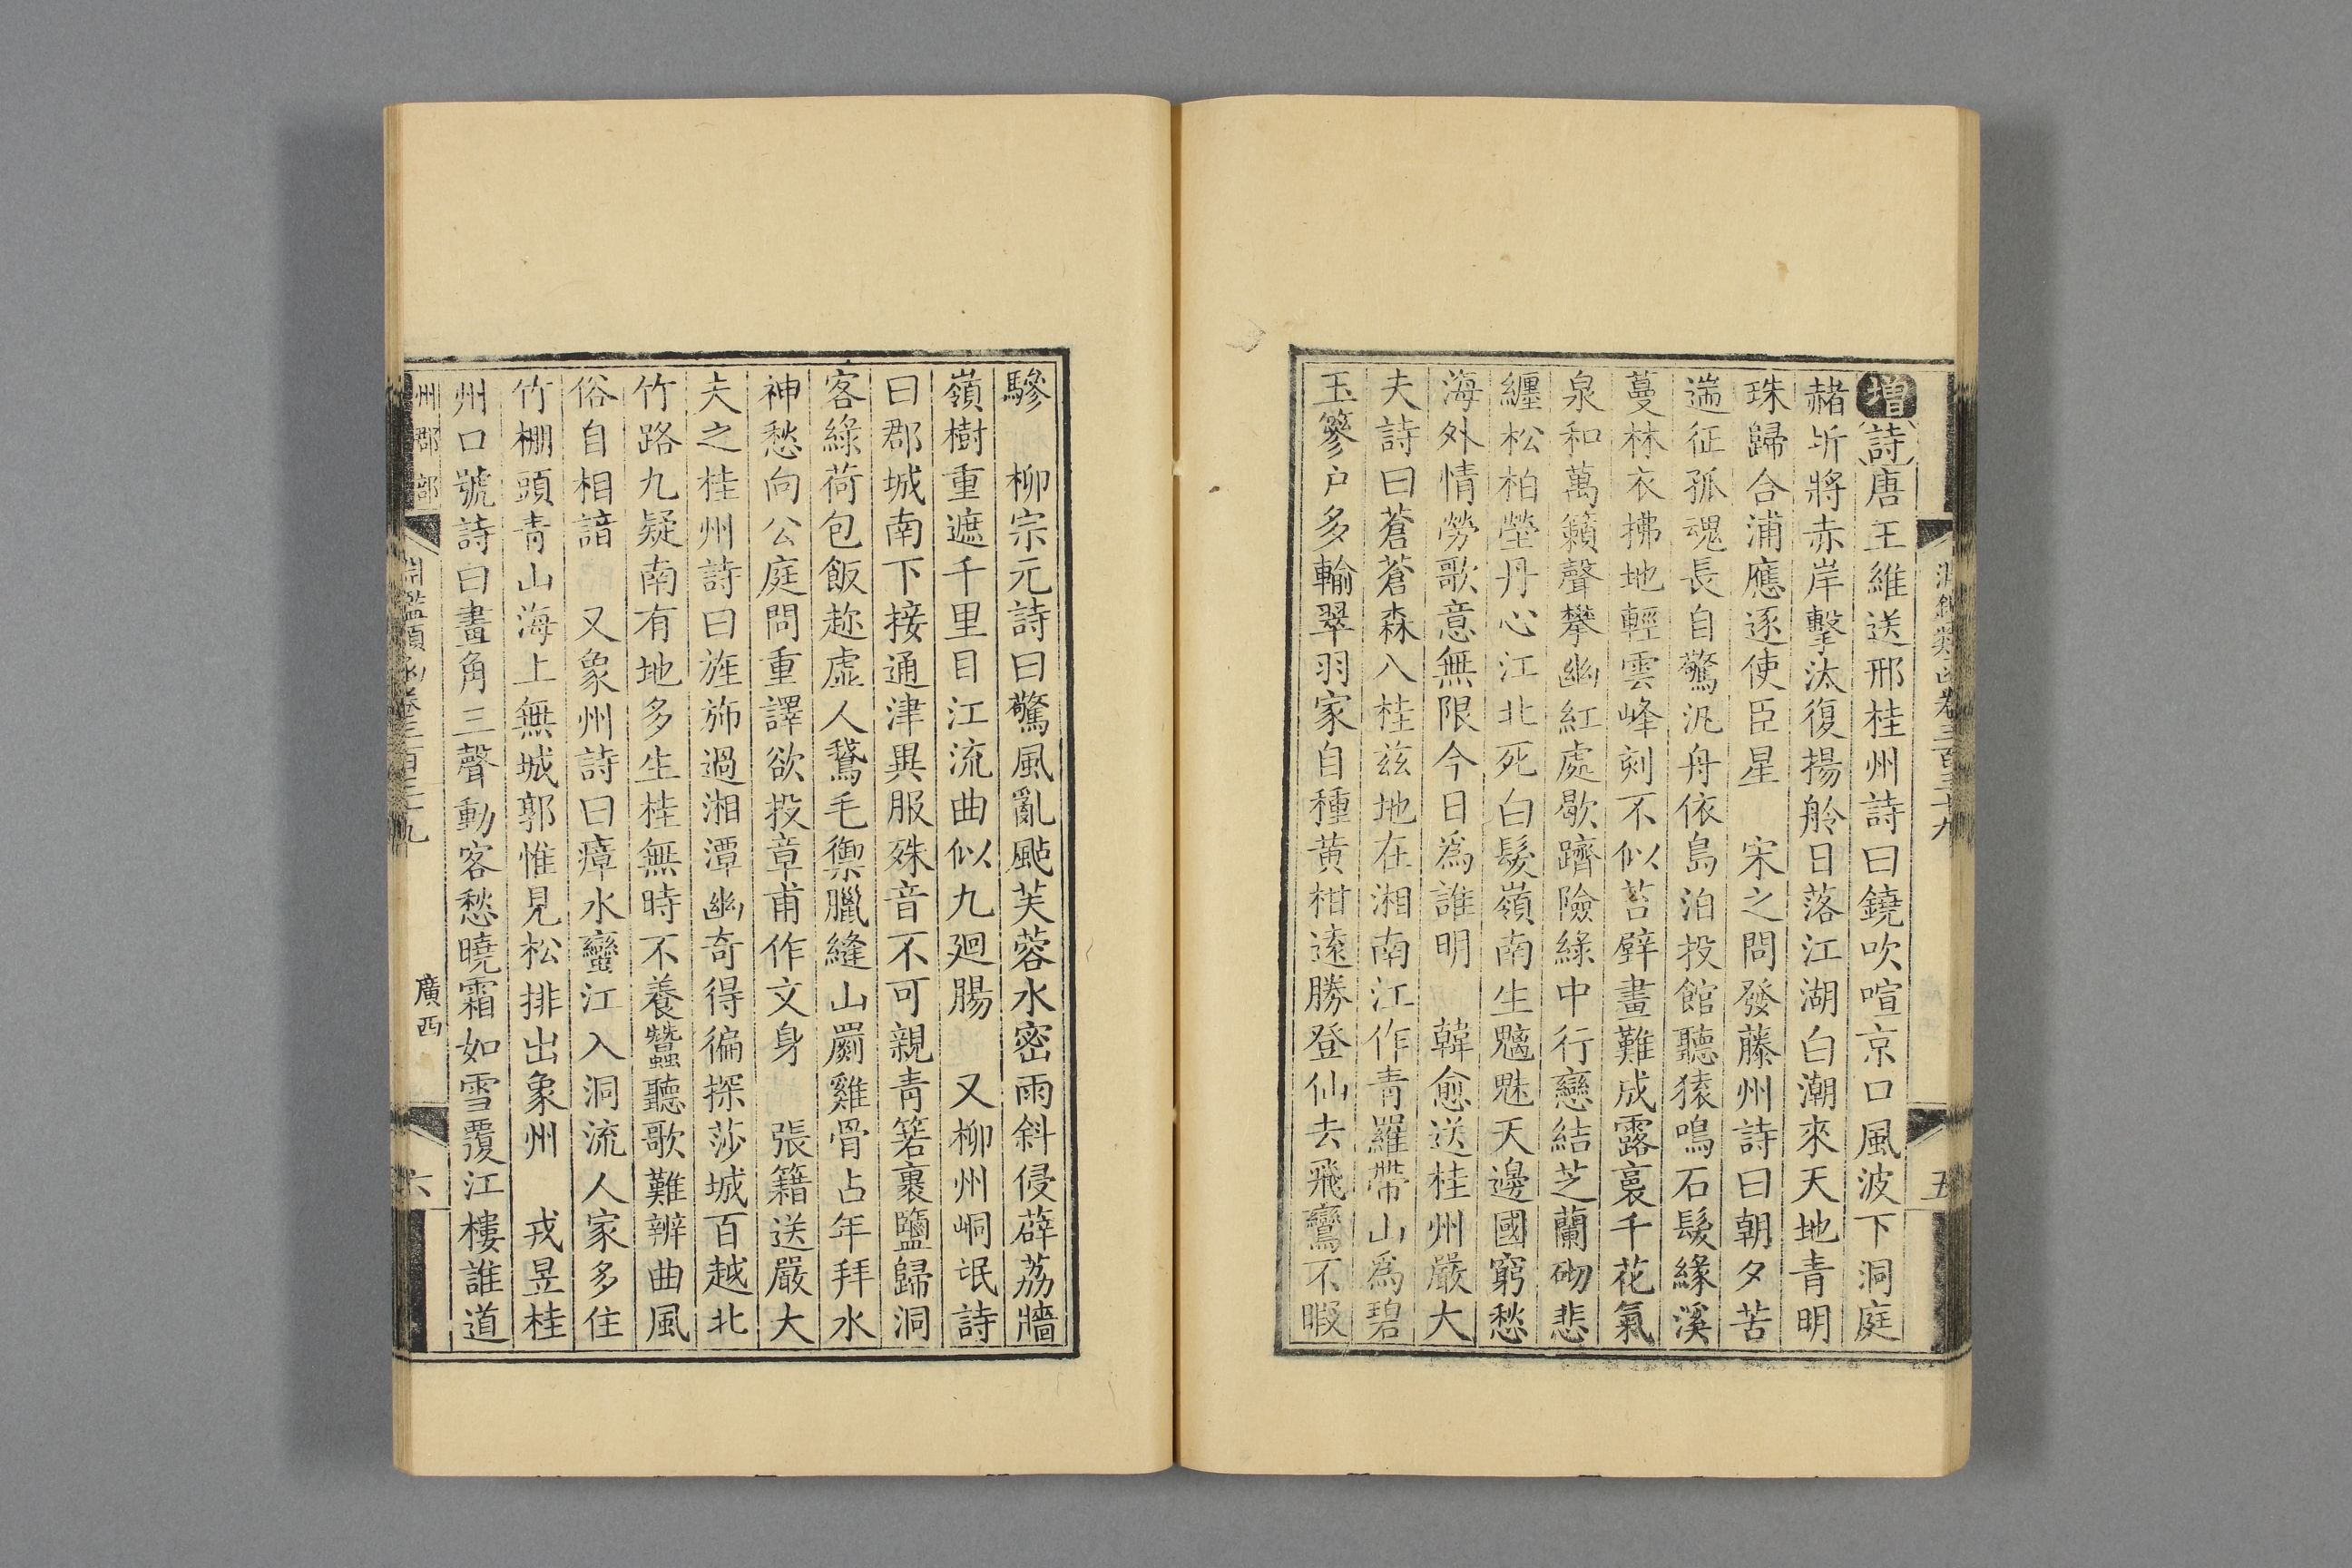 淵鑑類函卷三百三十九
五
增詩唐王維送邢桂州詩曰鐃吹喧京口風波下洞庭
赭圻將赤岸擊汰復揚舲日落江湖白潮來天地青明
珠歸合浦應逐使臣星 宋之問發藤州詩曰朝夕苦
遄征孤魂長自驚汎舟依島泊投館聽猿鳴石髮緣溪
蔓林衣拂地輕雲峰刻不似苔壁畫難成露裛千花氣
泉和萬籟聲攀幽紅處歇躋險綠中行戀結芝蘭砌悲
纏松柏塋丹心江北死白髮嶺南生魑魅天邊國窮愁
海外情勞歌意無限今日爲誰明 韓愈送桂州嚴大
夫詩曰蒼蒼森八桂茲地在湘南江作青羅帶山爲碧
玉篸戶多輸翠羽家自種黃柑遠勝登仙去飛鸞不暇
驂 柳宗元詩曰驚風亂颭芙蓉水密雨斜侵薜荔牆
嶺樹重遮千里目江流曲似九廻腸 又柳州峒氓詩
曰郡城南下接通津異服殊音不可親青箬裹鹽歸洞
客綠荷包飯趂虛人鵞毛禦臘縫山罽雞骨占年拜水
神愁向公庭問重譯欲投章甫作文身 張籍送嚴大
夫之桂州詩曰旌斾過湘潭幽奇得徧探莎城百越北
竹路九疑南有地多生桂無時不養蠶聽歌難辨曲風
俗自相諳 又象州詩曰瘴水蠻江入洞流人家多住
竹棚頭青山海上無城郭惟見松排出象州 戎昱桂
州口號詩曰畫角三聲動客愁曉霜如雪覆江樓誰道
州郡部
淵鑑類函卷三百三十九
廣西
六